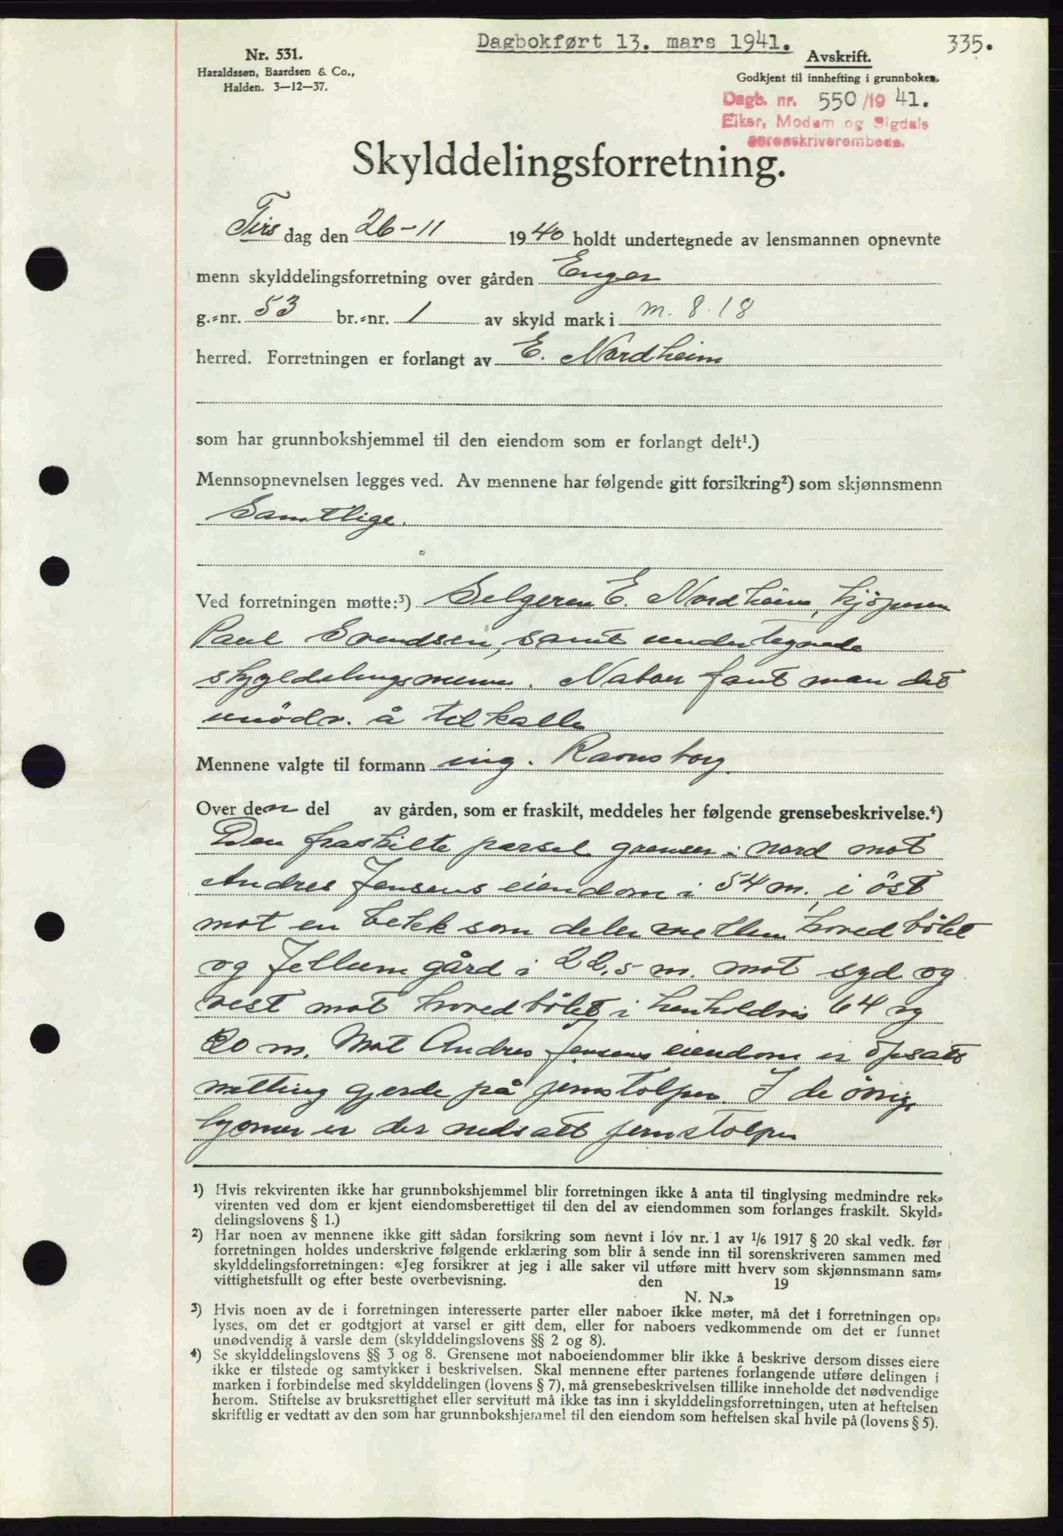 Dagbokført 13. mars 1941.
335.
Nr. 531.
Haraldssen, Baardsen & Co.,
Halden. 3—12—37.
Avskrift.
Godkjent til innhefting i grunnboken.
Dagb. nr. 550/19 41.
Eiker, Modum og Sigdals
sorenskriverembede.
Skylddelingsforretning.
Tirsdag den 26-11 1940 holdt undertegnede av lensmannen opnevnte
menn skylddelingsforretning over gården Enger
g.=nr. 53 br.=nr. 1 av skyld mark i m. 8.18
herred. Forretningen er forlangt av E. Nordheim
som har grunnbokshjemmel til den eiendom som er forlangt delt¹.)
Mennsopnevnelsen legges ved. Av mennene har følgende gitt forsikring²) som skjønnsmenn
Samtlige.
Ved forretningen møtte:³) Selgeren E. Nordheim, kjöperen
Paul Svendsen, samt undertegnede
skylddelingsmenn. Naboer fant man det
unödv. å tilkalle
Mennene valgte til formann ing. Ravnsborg.
Over den del av gården, som er fraskilt, meddeles her følgende grensebeskrivelse.⁴)
Den fraskilte parsel grenser i nord mot
Andres Jensens eiendom i 54 m. i öst
mot en bekk som deler mellem hovedbölet
og Jellum gård i 22,5 m. mot syd og
vest mot hovedbölet i henholdvis 64 og
20 m. Mot Andres Jensens eiendom er opsatt
netting gjerde på jernstolper. I de övrige
hjörner er der nedsatt jernstolper
¹) Hvis rekvirenten ikke har grunnbokshjemmel blir forretningen ikke å anta til tinglysing medmindre rek=
virenten ved dom er kjent eiendomsberettiget til den del av eiendommen som forlanges fraskilt. Skyld=
delingslovens § 1.)
²) Har noen av mennene ikke gitt sådan forsikring som nevnt i lov nr. 1 av 1/6 1917 § 20 skal vedk. før
forretningen holdes underskrive følgende erklæring som blir å sende inn til sorenskriveren sammen med
skylddelingsforretningen: «Jeg forsikrer at jeg i alle saker vil utføre mitt hverv som skjønnsmann sam=
vittighetsfullt og efter beste overbevisning. den 19
N. N.»
³) Hvis noen av de i forretningen interesserte parter eller naboer ikke møter, må det i forretningen op=
lyses, om det er godtgjort at varsel er gitt dem, eller for naboers vedkommende om det er funnet
unødvendig å varsle dem (skylddelingslovens §§ 2 og 8).
⁴) Se skylddelingslovens §§ 3 og 8. Grensene mot naboeiendommer blir ikke å beskrive dersom disses eiere
ikke er tilstede og samtykker i beskrivelsen. Skal mennene efter partenes forlangende utføre delingen i
marken i forbindelse med skylddelingen (lovens § 7), må grensebeskrivelsen tillike inneholde det nødvendige
herom. Stiftelse av bruksrettighet eller servitutt må ikke tas inn i skylddelingsforretningen, uten at heftelsen
skriftlig er vedtatt av den som har grunnbokshjemmel til den eiendom som heftelsen skal hvile på (lovens § 5).